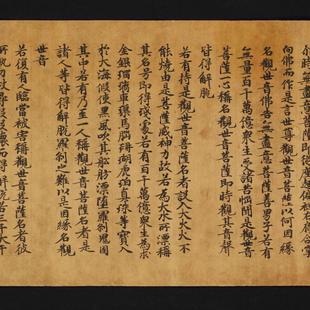 爾時無盡意菩薩即從座起偏袒右肩合掌
向佛而作是言世尊觀世音菩薩以何因緣
名觀世音佛告無盡意菩薩善男子若有
無量百千萬億眾生受諸苦惱聞是觀世音
菩薩一心稱名觀世音菩薩即時觀其音聲
皆得解脫
若有持是觀世音菩薩名者設入大火火不
能燒由是菩薩威神力故若為大水所漂稱
其名号即得淺處若有百千萬億眾生為求
金銀琉璃車𤦲馬瑙珊瑚虎珀真珠等寶入
於大海假使黑風吹其舩舫漂墮羅剎鬼國
其中若有乃至一人稱觀世音菩薩名者是
諸人等皆得解脫羅剎之難以是因緣名觀
世音
若復有人臨當被害稱觀世音菩薩名者彼
所執刀杖尋段段壞而得解脫若三千大千